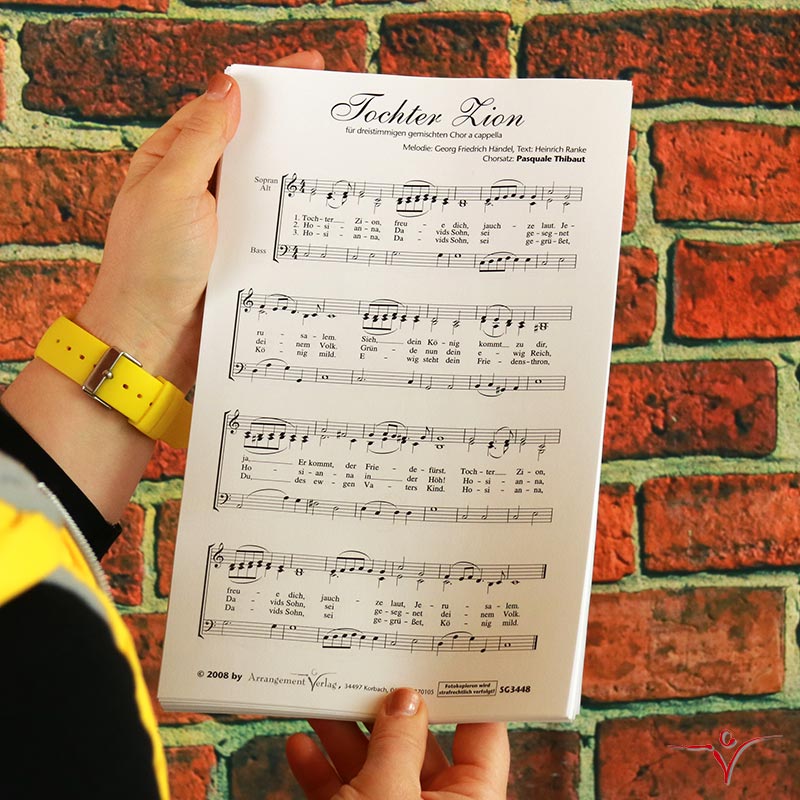 Tochter Zion
für dreistimmigen gemischten Chor a cappella
Melodie: Georg Friedrich Händel, Text: Heinrich Ranke
Chorsatz: Pasquale Thibaut
Sopran
Alt
1. Toch - ter Zi - on, freu - e dich, jauch - ze laut. Je -
2. Ho - si - an - na, Da - vids Sohn, sei ge - seg - net
3. Ho - si - an - na, Da - vids Sohn, sei ge - grü - ßet,
Bass
ru - sa - lem. Sieh, dein Kö - nig kommt zu dir,
dei - nem Volk. Grün - de nun dein e - wig Reich,
Kö - nig mild. E - wig steht dein Frie - dens - thron,
ja, Er kommt, der Frie - de - fürst. Toch - ter Zi - on,
Ho - si - an - na in der Höh! Ho - si - an - na,
Du, des ew - gen Va - ters Kind. Ho - si - an - na,
freu - e dich, jauch - ze laut, Je - ru - sa - lem.
Da - vids Sohn, sei ge - seg - net dei - nem Volk.
Da - vids Sohn, sei ge - grü - ßet, Kö - nig mild.
© 2008 by Arrangement Verlag, 34497 Korbach, 70105 Fotokopieren wird SG3448
strafrechtlich verfolgt!